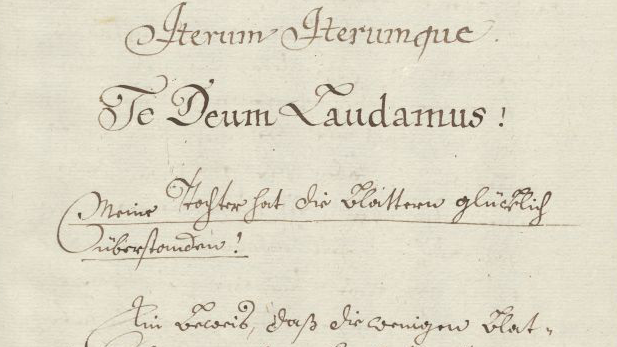 Iterum Iterumque.
Te Deum Laudamus!
Meine Tochter hat die Blattern glücklich
überstanden!
Ein Beweis, daß die wenigen Blat-